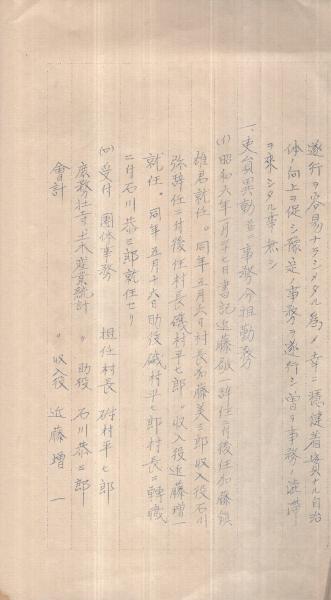 遂行ヲ容易ナラシメタル為メ幸ニ穏健着實ナル自治
体ノ向上ヲ促シ豫定ノ事務ヲ遂行シ曽テ事務ノ渋滞
ヲ来シタル事無シ
一、吏員異動並ニ事務分担勤務
(イ)昭和六年一月廿七日書記近藤 一辞任ニ付後任加藤鎮
雄君就任。同年五月六日村長加藤美三郎収入役石川
弥辞任ニ付後任村長磯村平七郎。収入役近藤増一
就任。同年五月十六日助役磯村平七郎村長ニ轉職
ニ付石川恭三郎就任セリ
(ロ)受付 團体事務 担任村長 磯村平七郎
庶務社寺土木産業統計 〃 助役 石川恭三郎
會計 〃 収入役 近藤増一